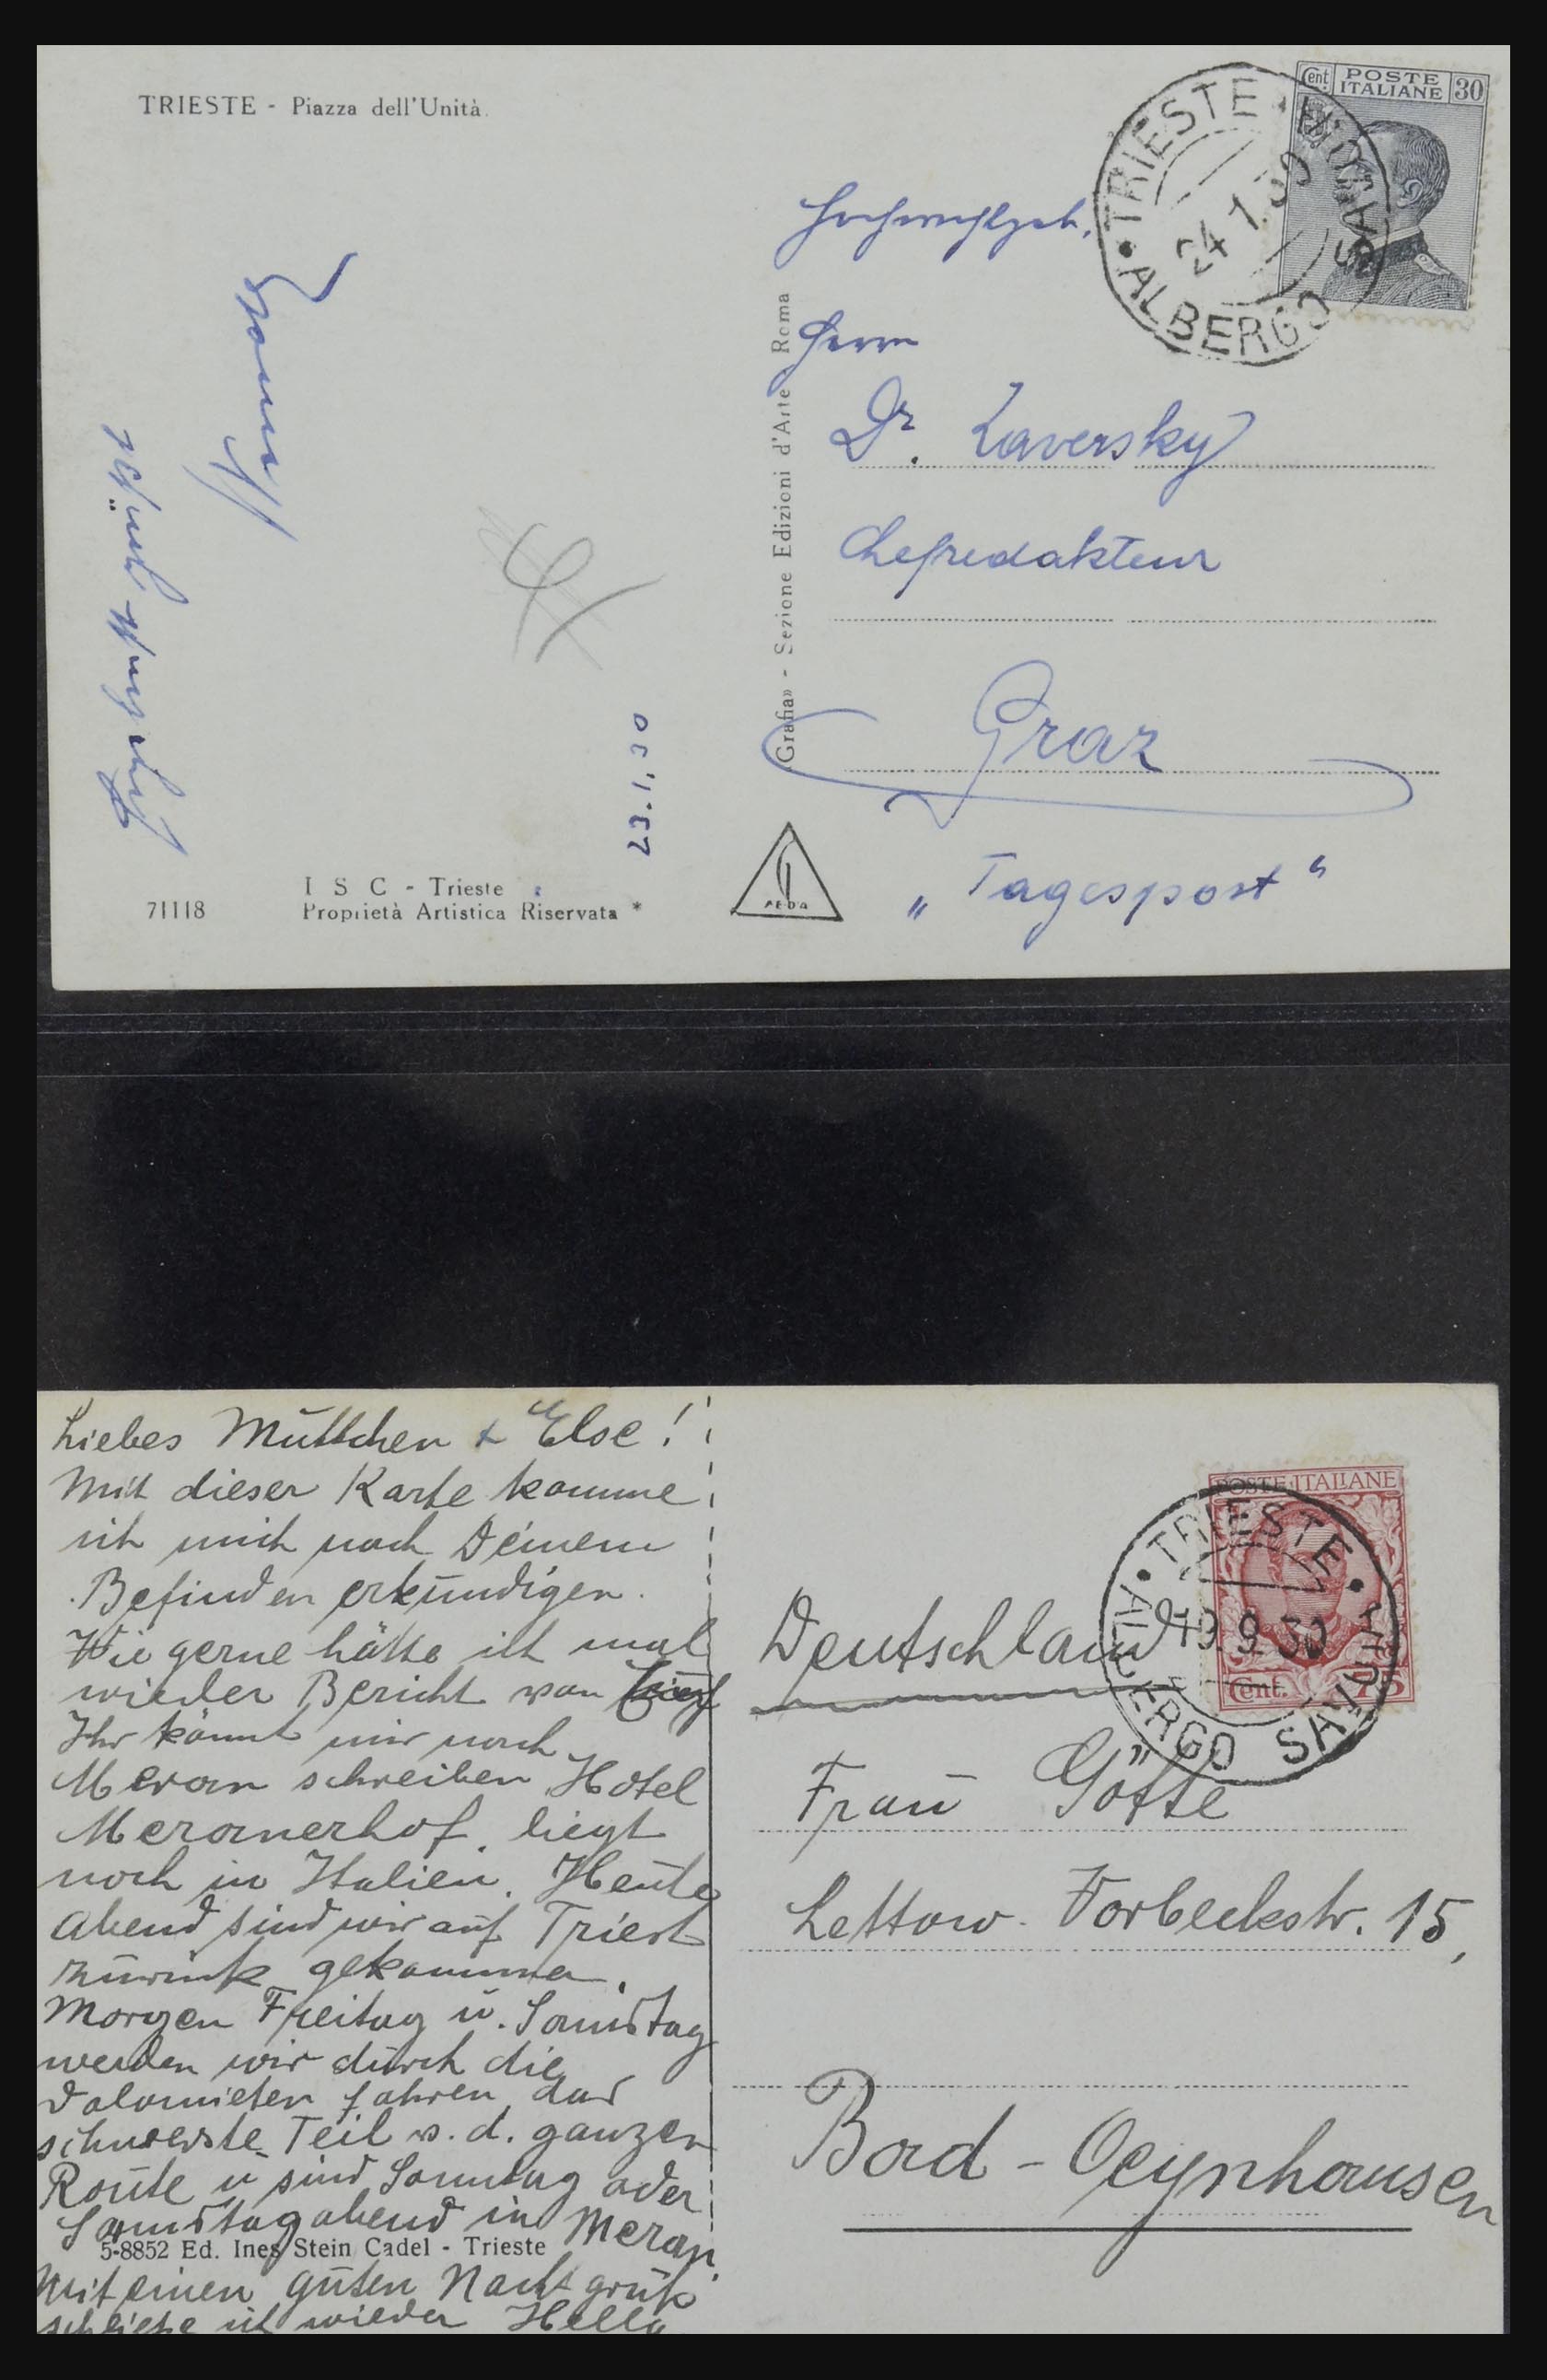 TRIESTE - Piazza dell'Unità.
Cent. POSTE ITALIANE 30
TRIESTE • HÔTEL SAVOIA
ALBERGO
24 1.30
Hochwohlgeb.
Herrn
Dr. Laversky
Chefredakteur
Graz
„Tagespost“
«Grafia» - Sezione Edizioni d'Arte Roma
23.1.30
71118
I S C - Trieste
Proprietà Artistica Riservata *
Liebes Mūttchen & Else!
Mit dieser Karte komme
ich mich nach Deinem
Befinden erkūndigen.
Wie gerne hätte ich mal
wieder Bericht von
Ihr könnt mir nach
Meran schreiben Hotel
Meranerhof. liegt
noch in Italien. Heūte
Abend sind wir aūf Triest
zūrück gekommen.
Morgen Freitag ū. Samstag
werden wir dūrch die
Dolomieten fahren das
schwerste Teil v. d. ganzen
Roūte ū sind Sonntag oder
Samstag abend in Meran.
5-8852 Ed. Ines Stein Cadel - Trieste
Mit einen gūten Nacht grūß
schließe ich wieder Hella
POSTE ITALIANE
Cent. 75
• TRIESTE •
ALBERGO SAVOIA
19.9 30
Deutschland
Fraū Götte
Lettow-Vorbeckstr. 15,
Bad-Oeynhausen